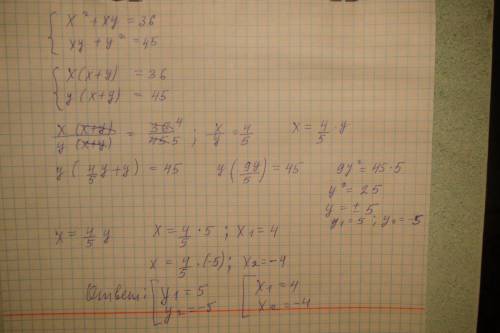 x² + xy = 36
xy + y² = 45
x(x+y) = 36
y(x+y) = 45
x(x+y)/y(x+y) = 36 4/45 5 ; x/y = 4/5 x = 4/5 · y
y(4/5 y + y) = 45 y(9y/5) = 45 9y² = 45·5
y² = 25
y = ± 5
y1 = 5 ; y2 = -5
x = 4/5 y x = 4/5 · 5 ; x1 = 4
x = 4/5 · (-5) ; x2 = -4
Ответ: [y1 = 5 [x1 = 4
y2 = -5 x2 = -4